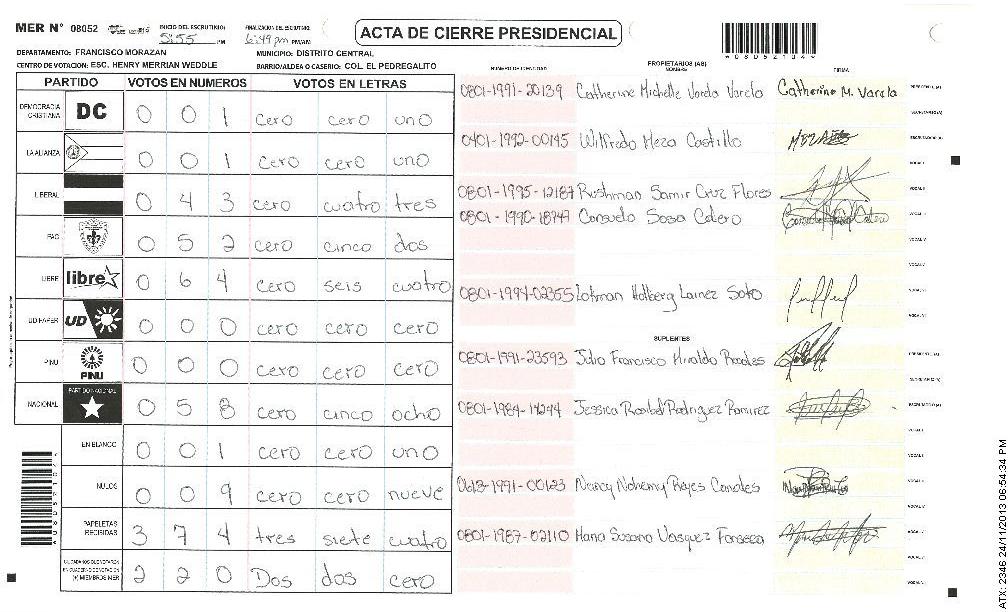 MER N° 08052 INICIO DEL ESCRUTINIO: 5:55 PM FINALIZACION DEL ESCRUTINIO: 6:49 pm PM/AM
ACTA DE CIERRE PRESIDENCIAL
DEPARTAMENTO: FRANCISCO MORAZAN MUNICIPIO: DISTRITO CENTRAL
CENTRO DE VOTACION: ESC. HENRY MERRIAN WEDDLE BARRIO/ALDEA O CASERIO: COL. EL PEDREGALITO
PARTIDO VOTOS EN NUMEROS VOTOS EN LETRAS
DEMOCRACIA CRISTIANA DC 0 0 1 cero cero uno
LA ALIANZA 0 0 1 cero cero uno
LIBERAL 0 4 3 cero cuatro tres
PAC 0 5 2 cero cinco dos
LIBRE libre 0 6 4 cero seis cuatro
UD FAPER UD 0 0 0 cero cero cero
PINU PINU 0 0 0 cero cero cero
NACIONAL PARTIDO NACIONAL 0 5 8 cero cinco ocho
EN BLANCO 0 0 1 cero cero uno
NULOS 0 0 9 cero cero nueve
PAPELETAS RECIBIDAS 3 7 4 tres siete cuatro
2 2 0 Dos dos cero
NUMERO DE IDENTIDAD PROPIETARIOS (AS) NOMBRE FIRMA
0801-1991-20139 Catherine Michelle Varela Varela Catherine M. Varela
0401-1992-00145 Wilfredo Meza Castillo
0801-1995-12187 Rushman Samir Cruz Flores
0801-1990-18747 Consuelo Sosa Calero
0801-1994-02355 Lotman Holberg Lainez Soto
SUPLENTES
0801-1991-23593 Julio Francisco Hiraldo Rosales
0801-1984-14244 Jessica Raxibel Rodriguez Ramirez
0613-1991-00123 Nancy Nohemy Reyes Canales
0801-1987-02110 Hana Susana Vasquez Fonseca
ATX: 2346 24/11/2013 06:54:34 PM